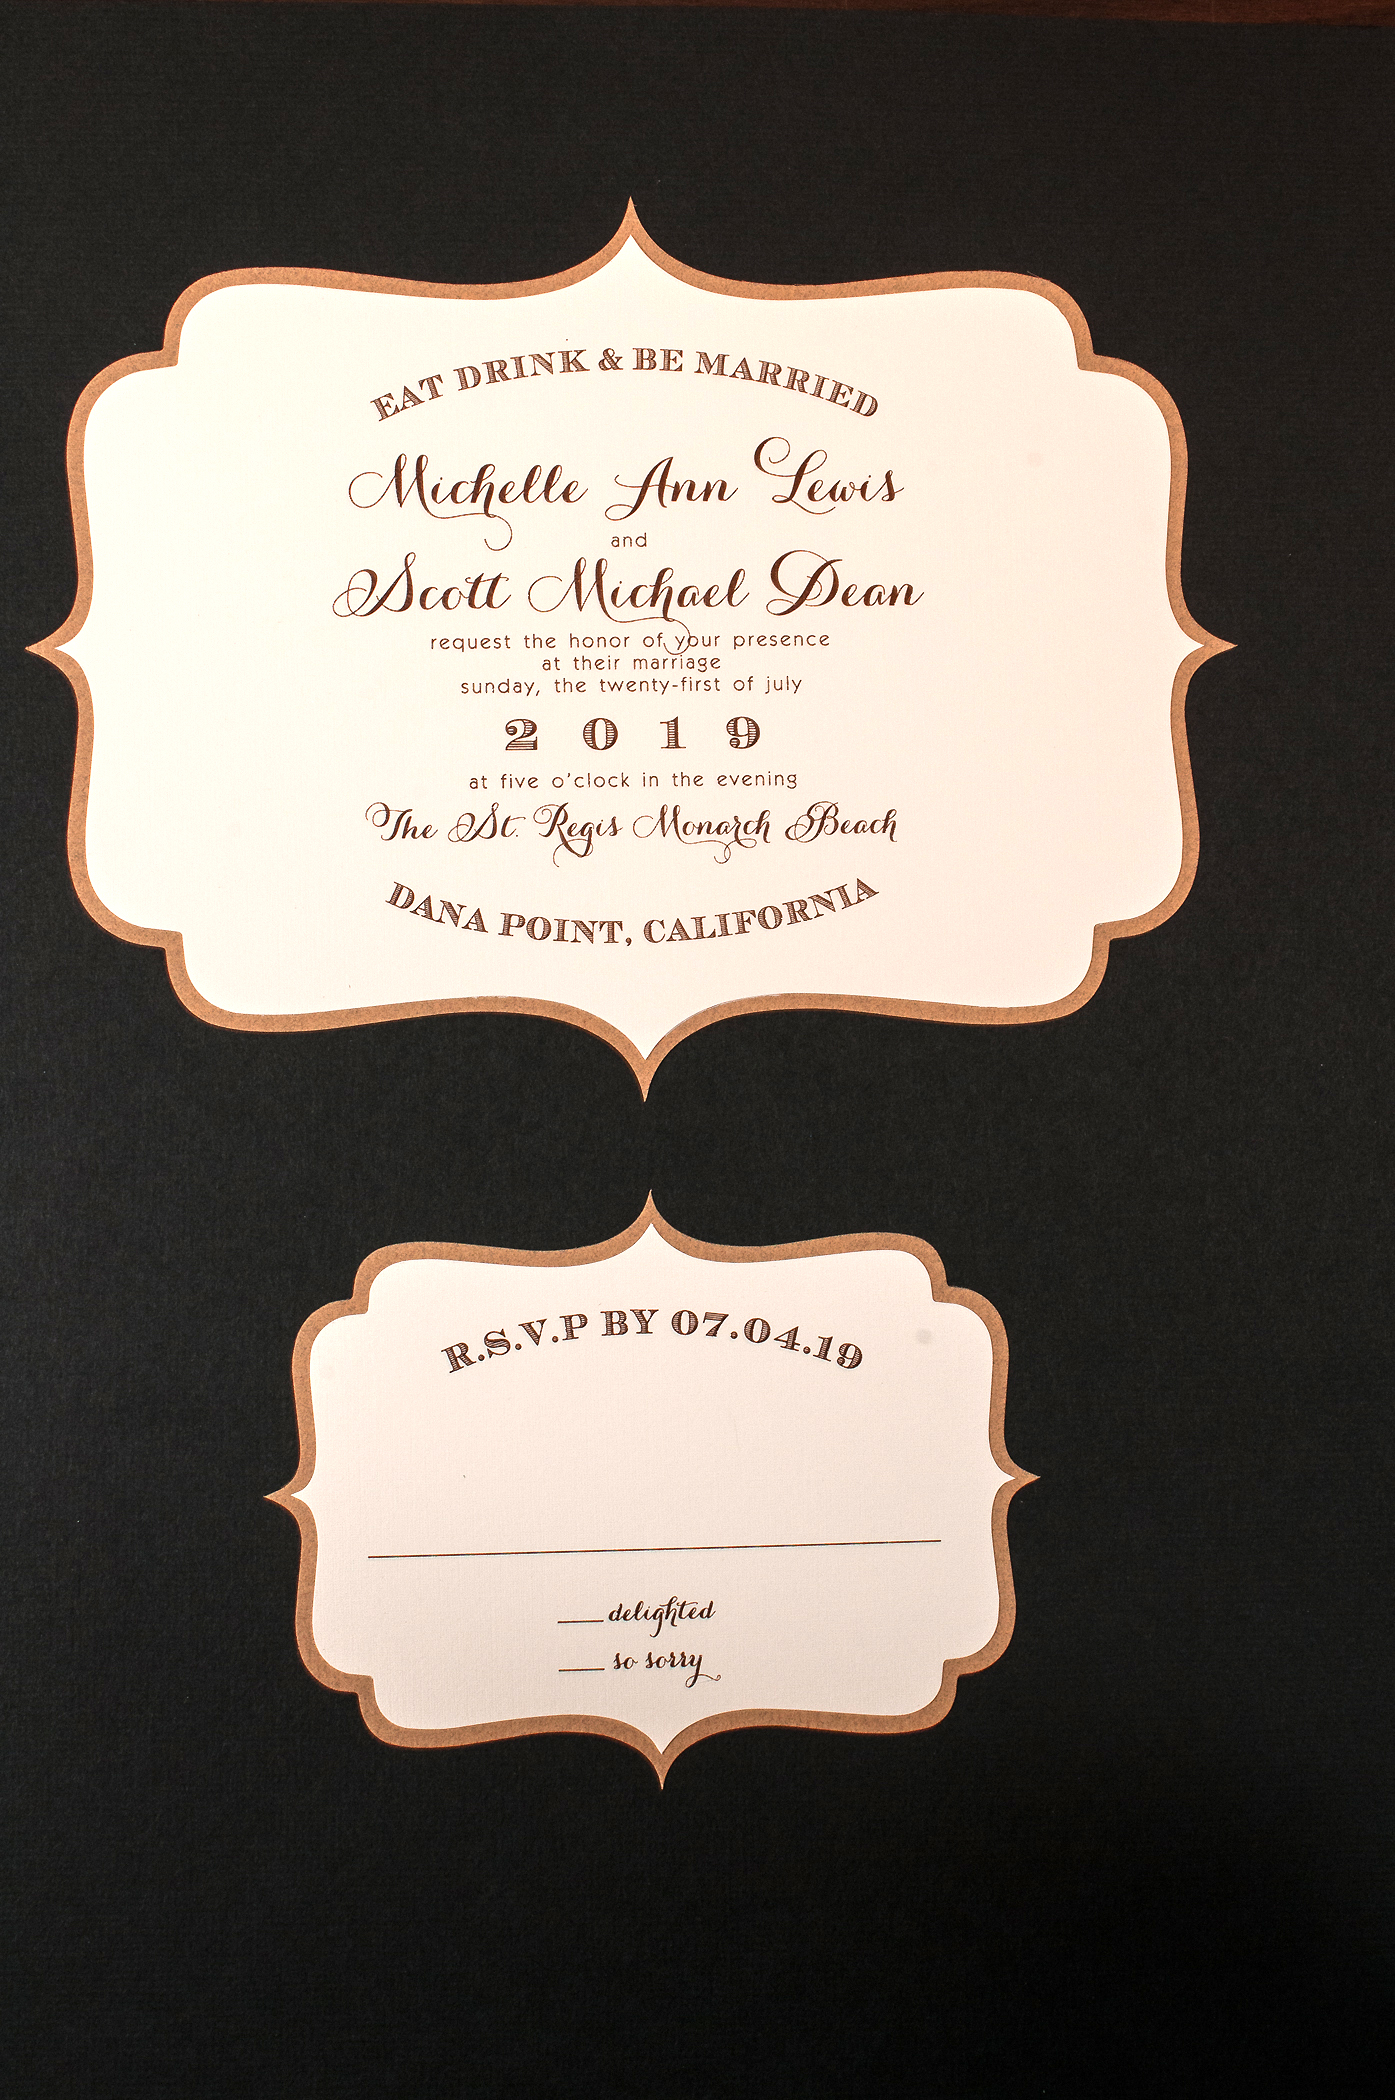 EAT DRINK & BE MARRIED
Michelle Ann Lewis
and
Scott Michael Dean
request the honor of your presence
at their marriage
sunday, the twenty-first of july
2 0 1 9
at five o'clock in the evening
The St. Regis Monarch Beach
DANA POINT, CALIFORNIA
R.S.V.P BY 07.04.19
___ delighted
___ so sorry